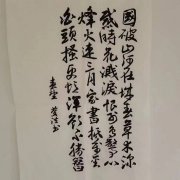 國破山河在城春草木深
感時花濺淚恨別鳥驚心
烽火連三月家書抵萬金
白頭搔更短渾欲不勝簪
春望